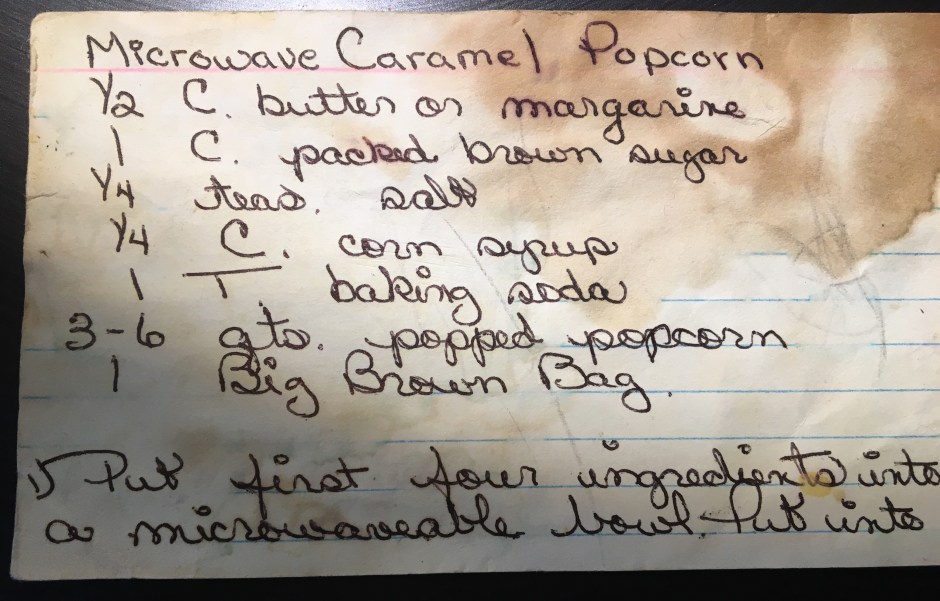 Microwave Caramel Popcorn
1/2 C. butter or margarine
1 C. packed brown sugar
1/4 teas. salt
1/4 C. corn syrup
1 T. baking soda
3-6 qts. popped popcorn
1 Big Brown Bag.
1) Put first four ingredients into
a microwaveable bowl. Put into